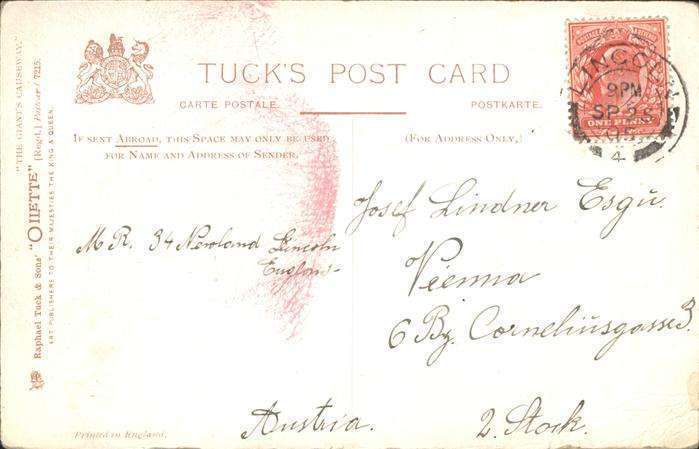 "THE GIANT'S CAUSEWAY."
Raphael Tuck & Sons' "OILETTE" [Regd.] Postcard 7215.
ART PUBLISHERS TO THEIR MAJESTIES THE KING & QUEEN.
TUCK'S POST CARD
CARTE POSTALE.
POSTKARTE.
IF SENT ABROAD, THIS SPACE MAY ONLY BE USED
FOR NAME AND ADDRESS OF SENDER.
(FOR ADDRESS ONLY.)
LINCOLN
9PM
SP 25
05
4
ONE PENNY
M R. 34 Newland Lincoln
England
Josef Lindner Esqu.
Vienna
6 Bz. Corneliusgasse 3
Austria.
2. Stock.
Printed in England.